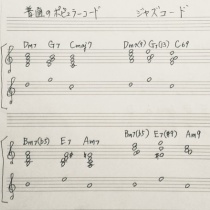 普通のポピュラーコード ジャズコード
Dm7 G7 Cmaj7 Dm7(9) G7(13) C69
Bm7(b5) E7 Am7 Bm7(b5) E7(#9) Am9